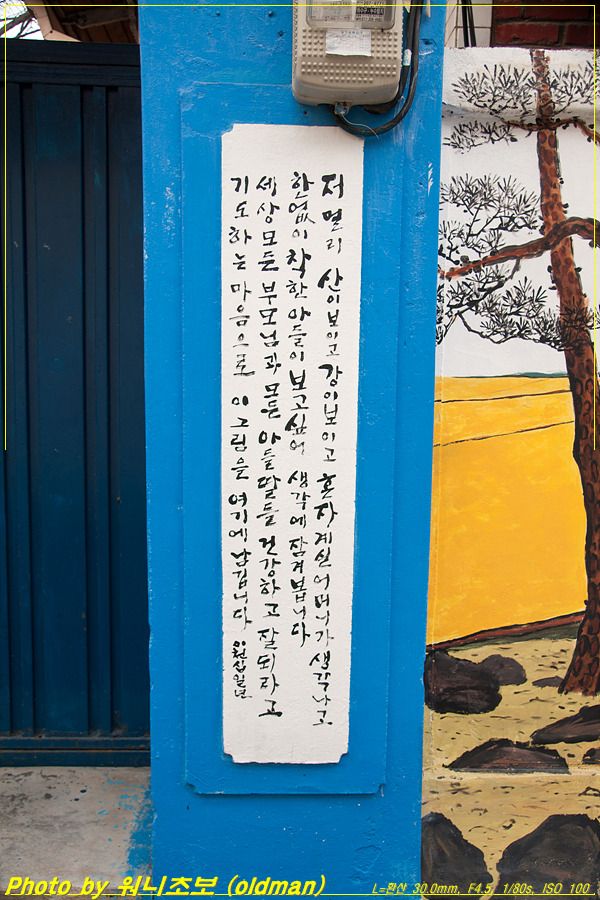 저 멀리 산이보이고 강이보이고 혼자계신 어머니가 생각나고
한없이 착한 아들이 보고싶어 생각에 잠겨봅니다
세상 모든 부모님과 모든 아들 딸들 건강하고 잘되라고
기도하는 마음으로 이그림을 여기에 남깁니다 이천십일년
Photo by 워니초보 (oldman)
L=환산 30.0mm, F4.5, 1/80s, ISO 100